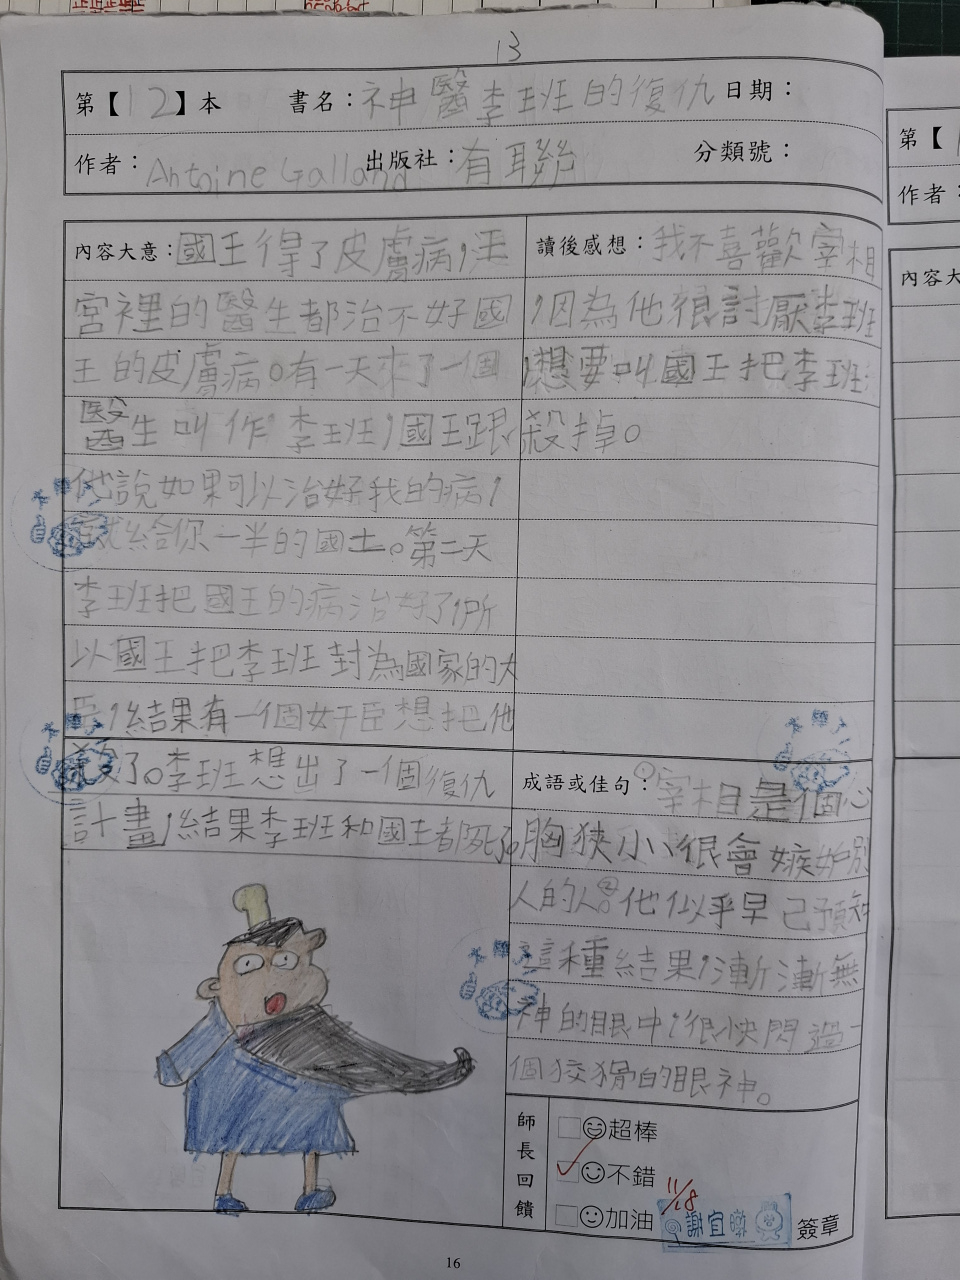 13
第【12】本 書名：神醫李班的復仇 日期：
作者：Antoine Galland 出版社：有聯 分類號：
內容大意：國王得了皮膚病，王
宮裡的醫生都治不好國
王的皮膚病。有一天來了一個
醫生叫作李班，國王跟
他說如果可以治好我的病，
我給你一半的國土。第二天
李班把國王的病治好了，所
以國王把李班封為國家的大
臣，結果有一個奸臣想把他
殺了。李班想出了一個復仇
計畫，結果李班和國王都死了。
讀後感想：我不喜歡宰相
，因為他很討厭李班
，想要叫國王把李班
殺掉。
成語或佳句：①宰相是個心
胸狹小、很會嫉妒別
人的人。②他似乎早已預知
這種結果，漸漸無
神的眼中，很快閃過一
個狡猾的眼神。
師長回饋
超棒
不錯
加油
11/18
謝宜聯
簽章
16
第【
作者：
內容大